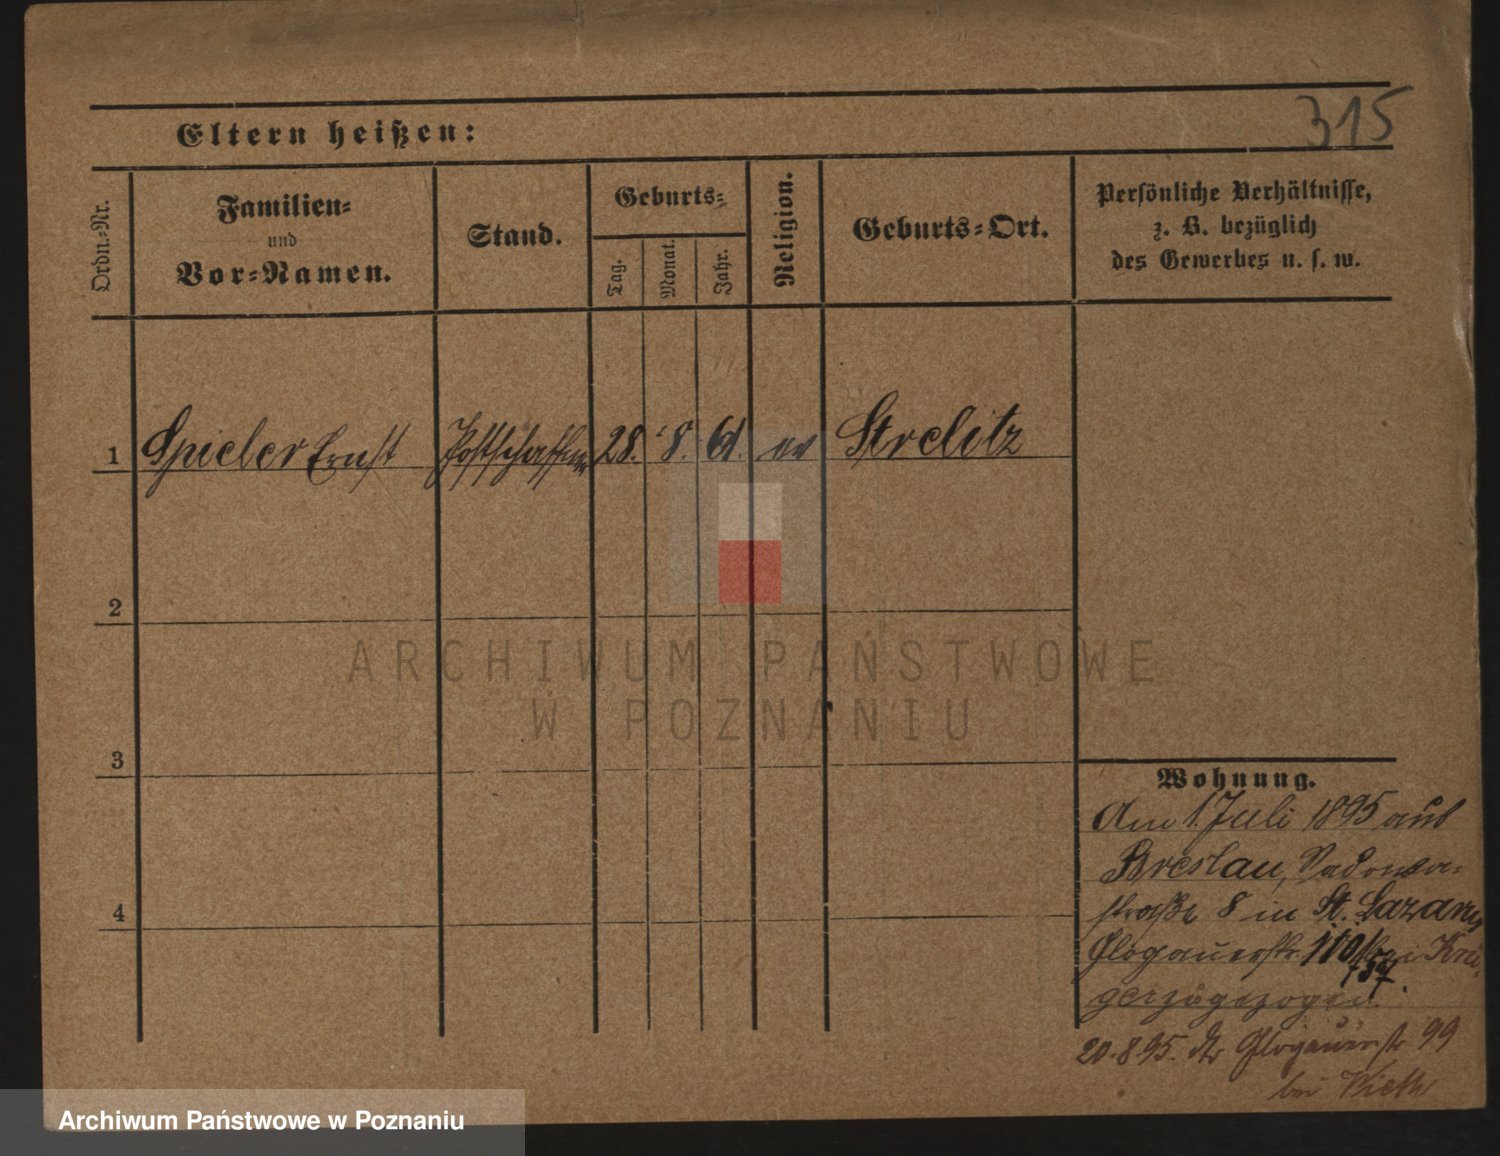 315
Eltern heißen:
Ordn.-Nr.
Familien-
und
Vor-Namen.
Stand.
Geburts-
Tag.
Monat.
Jahr.
Religion.
Geburts-Ort.
Persönliche Verhältnisse,
z. B. bezüglich
des Gewerbes u. s. w.
1 Spieler Ernst 28. 8. 61. ev Strelitz
2
3
4
Wohnung.
Am 1. Juli 1895 aus
Breslau,
straße 8 in St. Lazarus
Glogauerstr. 110 bei Krü-
757
ger zugezogen.
20.8.95. Glogauerstr 99
bei
ARCHIWUM PAŃSTWOWE
W POZNANIU
Archiwum Państwowe w Poznaniu